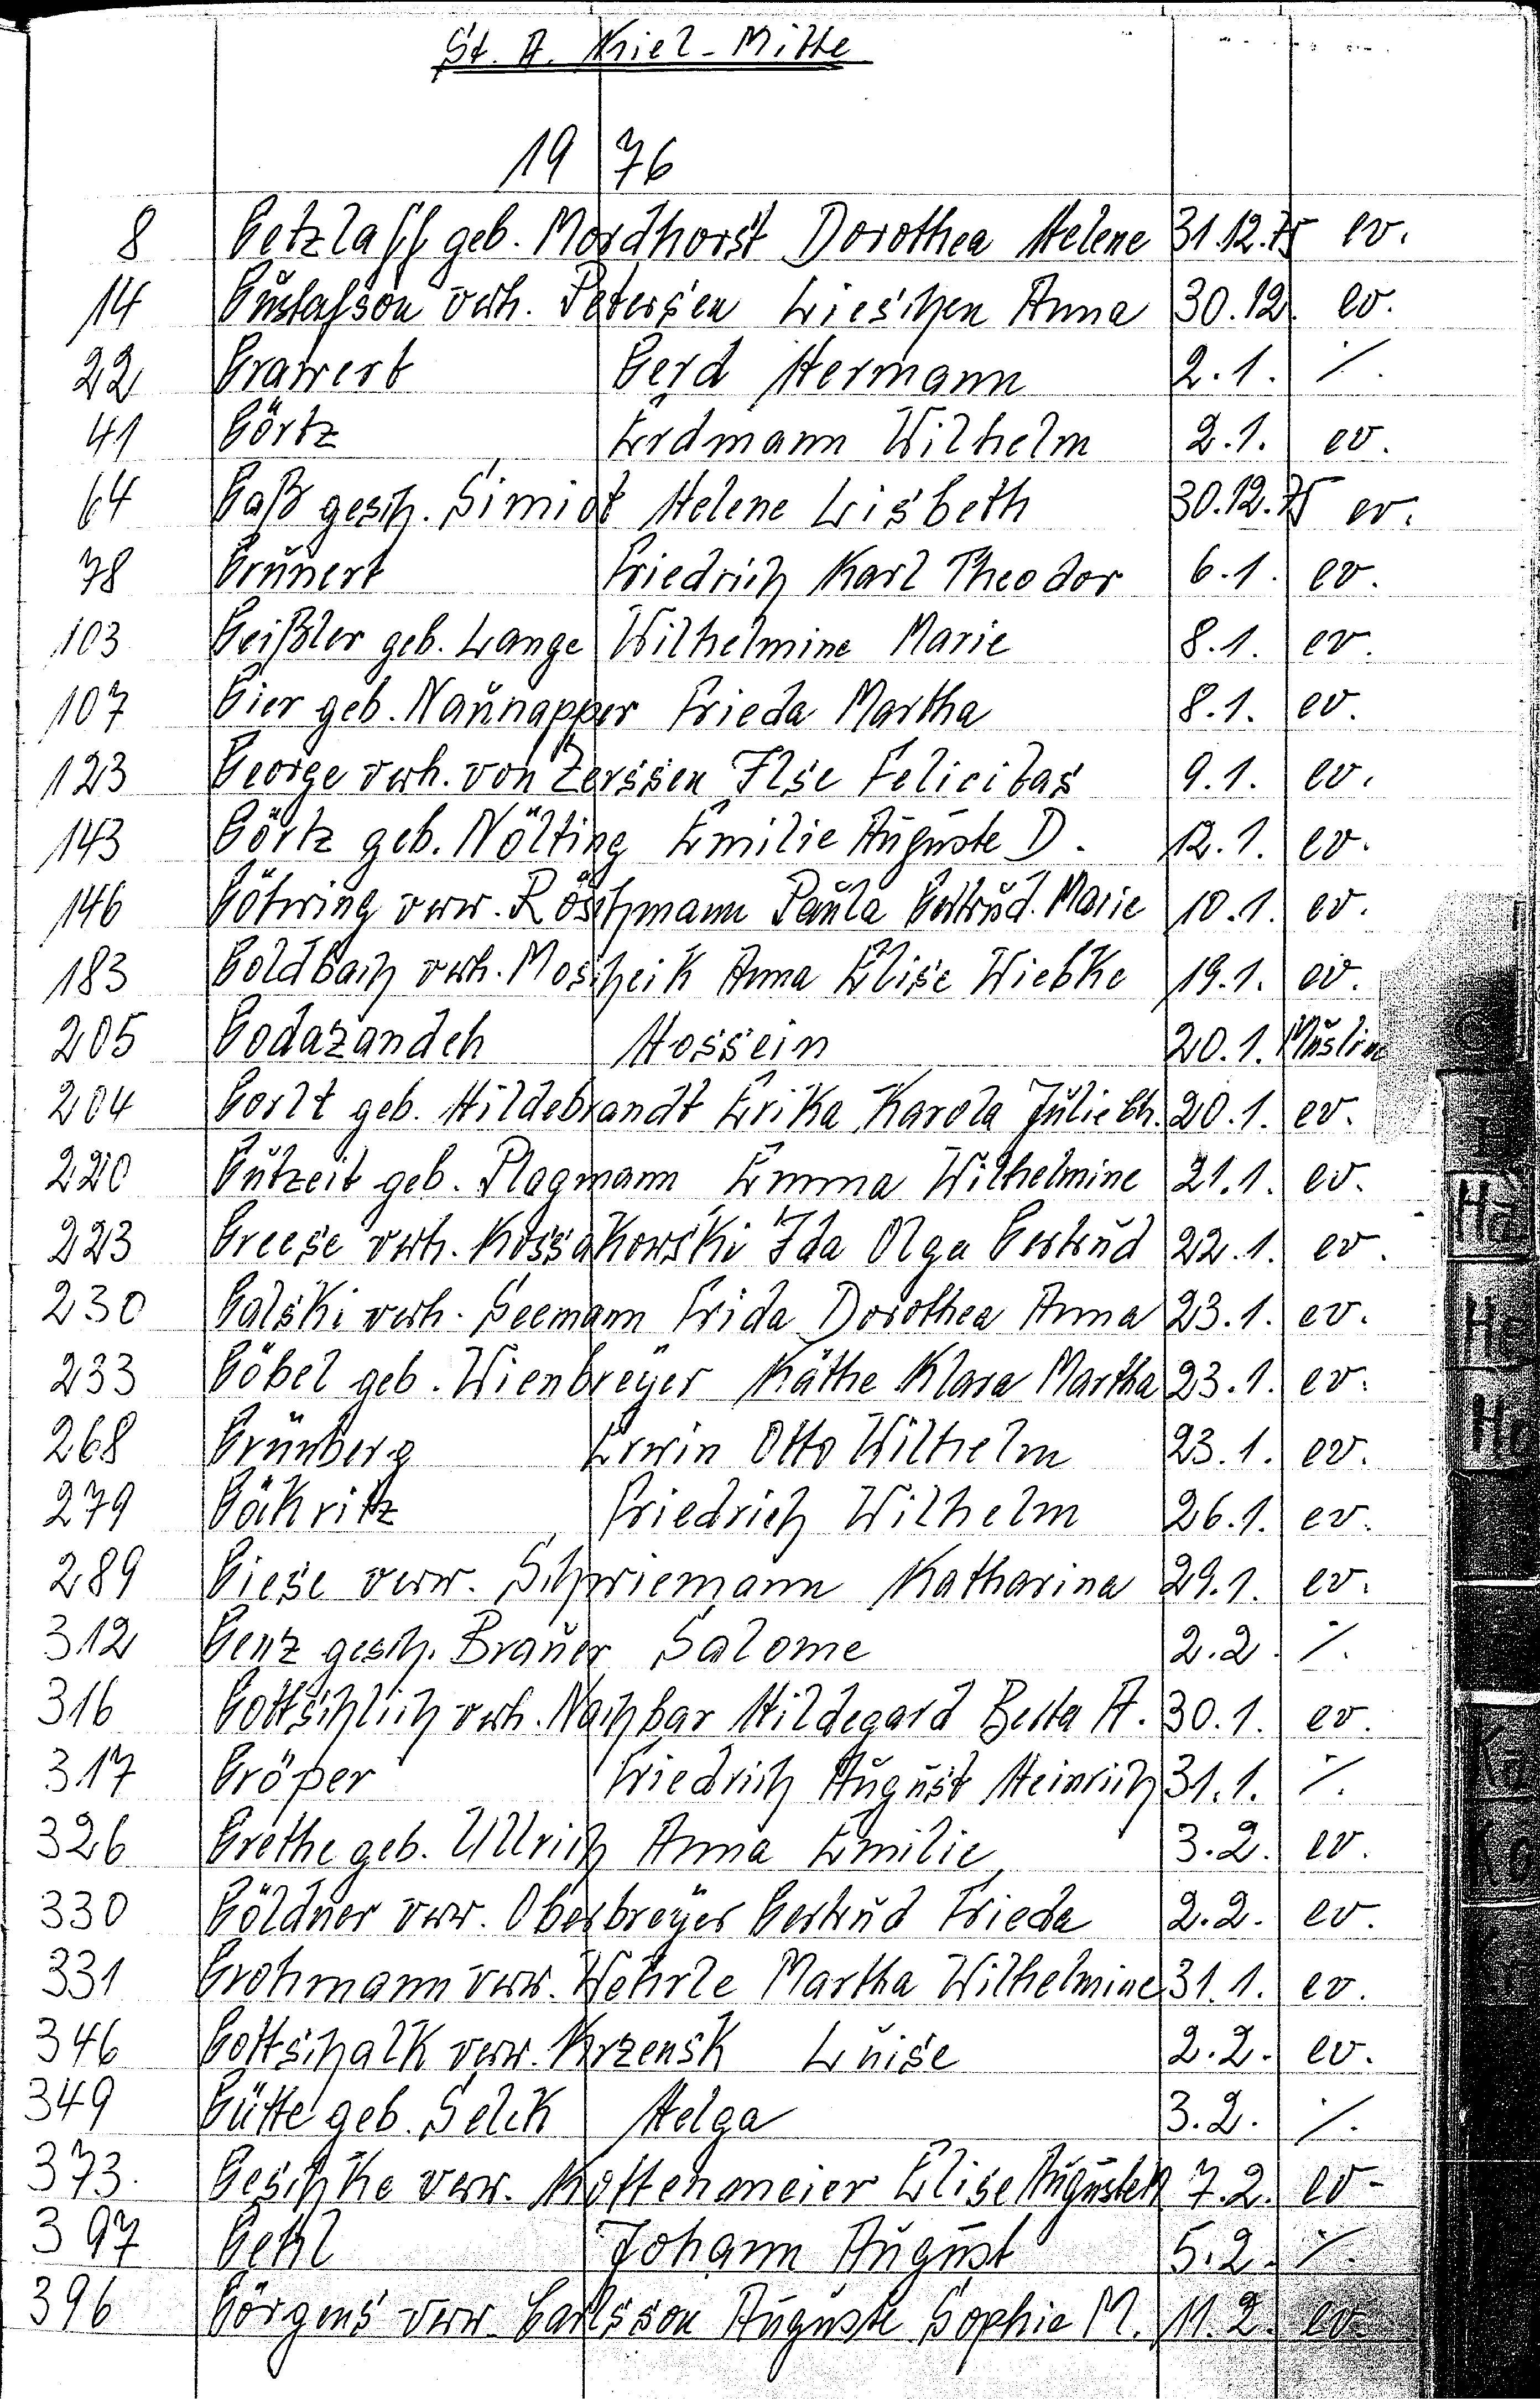 St. A. Kiel-Mitte
1976
8 Getzlaff geb. Mordhorst Dorothea Helene 31.12.75 ev.
14 Gustafson verh. Petersen Lieschen Anna 30.12. ev.
22 Grawert Gerd Hermann 2.1. %
41 Görtz Erdmann Wilhelm 2.1. ev.
64 Gaß gesch. Simiot Helene Lisbeth 30.12.75 ev.
78 Grunert Friedrich Karl Theodor 6.1. ev.
103 Geißler geb. Lange Wilhelmine Marie 8.1. ev.
107 Gier geb. Naunapper Frieda Martha 8.1. ev.
123 George verh. von Zerssen Ilse Felicitas 9.1. ev.
143 Görtz geb. Nölting Emilie Auguste D. 12.1. ev.
146 Göhring verw. Röschmann Paula Gertrud Marie 10.1. ev.
183 Goldbach verh. Moscheik Anna Elise Wiebke 19.1. ev.
205 Godazandeh Hossein 20.1. Muslim
204 Gorlt geb. Hildebrandt Erika Karola Julie Ch. 20.1. ev.
220 Gutzeit geb. Plagmann Emma Wilhelmine 21.1. ev.
223 Greese verh. Kossakowski Ida Olga Gertrud 22.1. ev.
230 Galski verh. Seemann Frida Dorothea Anna 23.1. ev.
233 Göbel geb. Wienbreyer Käthe Klara Martha 23.1. ev.
268 Grünberg Erwin Otto Wilhelm 23.1. ev.
279 Gäkritz Friedrich Wilhelm 26.1. ev.
289 Giese verw. Schwiemann Katharina 29.1. ev.
312 Genz gesch. Brauer Salome 2.2. %
316 Gottschlich verh. Nachbar Hildegard Berta A. 30.1. ev.
317 Gröper Friedrich August Heinrich 31.1. %
326 Grethe geb. Ullrich Anna Emilie 3.2. ev.
330 Göldner verw. Oberbreyer Gertrud Frieda 2.2. ev.
331 Grohmann verw. Wehrle Martha Wilhelmine 31.1. ev.
346 Gottschalk verw. Krzensk Luise 2.2. ev.
349 Gütte geb. Selck Helga 3.2. %
373. Geschke verw. Kottenmeier Elise Auguste 7.2. ev-
397 Gehl Johann August 5.2. %
396 Görgens verw. Carlsson Auguste Sophie M. 11.2. ev.